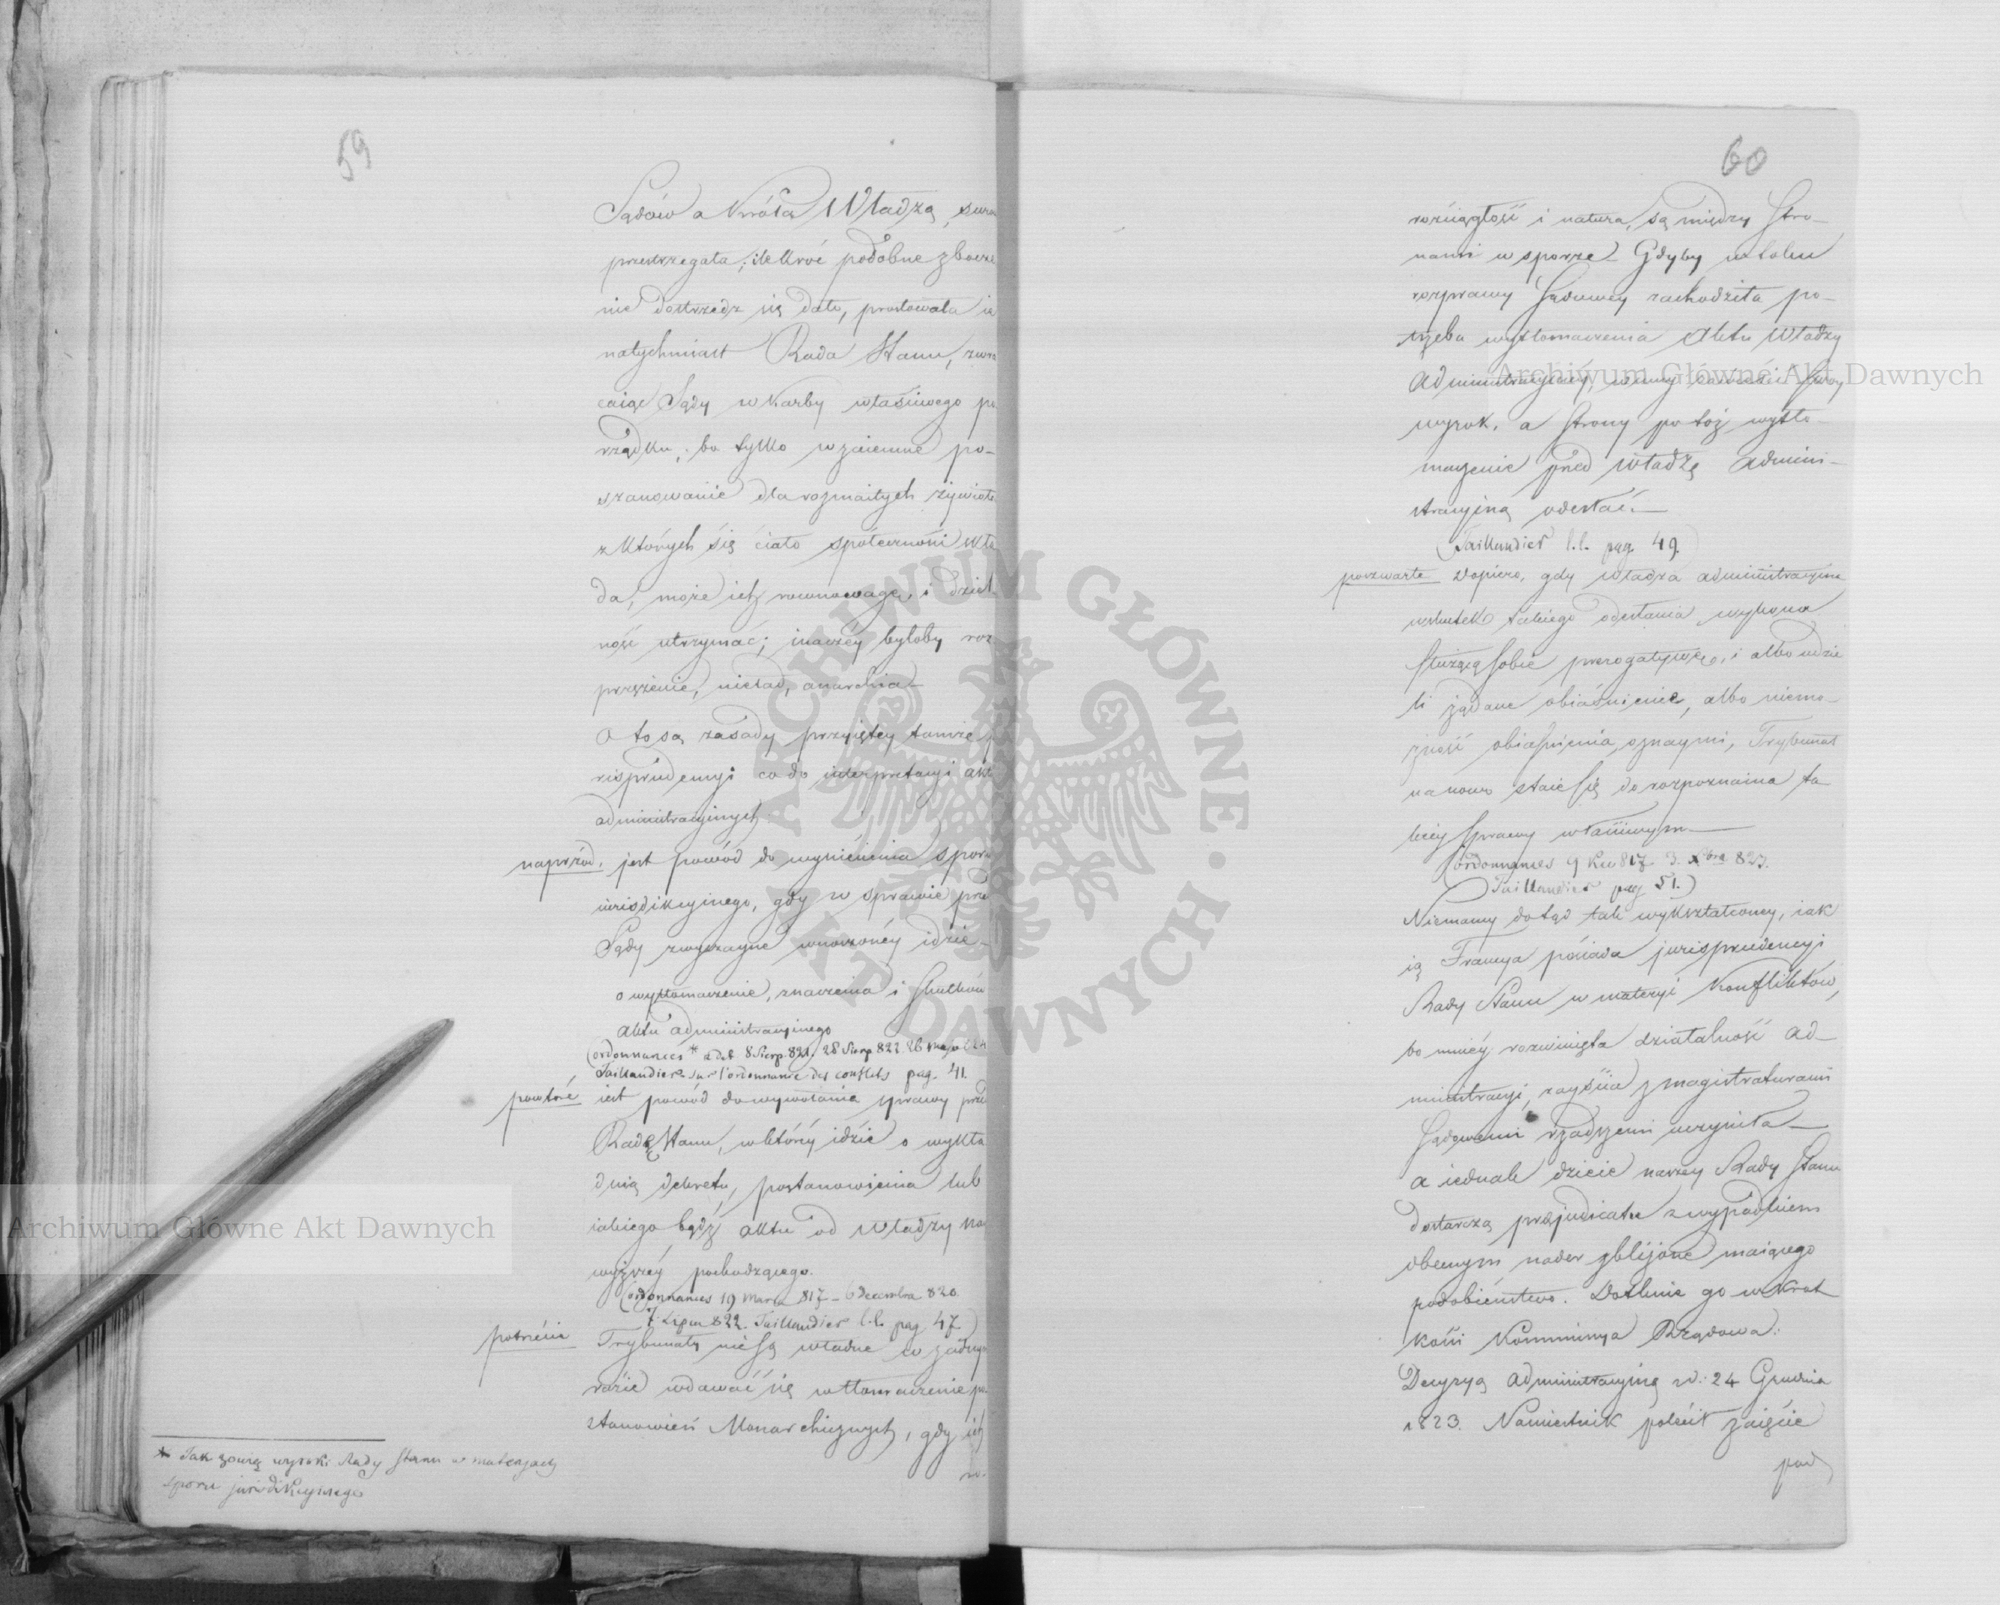 59
Sądów a Królą Władzą, suro
przestrzegała; ilekroć podobne zbocze
nie dostrzedz się dało, prostowała ie
natychmiast Rada Stanu, zwra
caiąc Sądy w karby właściwego po
rządku, bo tylko wzaiemne po-
szanowanie dla rozmaitych żywiołó
z których się ciało społeczności skła
da, może ich rownowagę, i dziel
ność utrzymać; inaczéy byłoby roz
przężenie, nieład, anarchia —
Oto są zasady przyiętey tamże ju
risprudencyi co do interpretacyi akt
administracyinych
naprzód. jest powód do wyniesienia sporu
iurisdikcyinego, gdy w sprawie prze
Sądy zwyczayne wnoszonéy idzie
o wytłomaczenie, znaczenia i skutków
aktu administracyinego
(ordonnances * z dat. 8 Sierp. 821. 28 Sierp 822. 26 maja 824
Taillandier sur l'ordonnance des conflits pag. 41.
powtóre iest powód do wywołania sprawy prze
Radę Stanu, w któréy idzie o wykła
dnią dekretu, postanowienia lub
iakiego bądź aktu od Władzy na
wyższéy pochodzącego.
(ordonnances 19 Marca 817 – 6 Decembra 820.
7 Lipca 822. Taillandier l.l. pag. 47.)
potrzecie Trybunały nie są władne w żadny
razie wdawać się w tłomaczenie po
stanowień Monarchicznych, gdy ich
ro-
* Tak zowią wyroki Rady Stanu w materyach
sporu jurisdikcyinego
60
rozciągłość i natura, są między Stro-
nami w sporze — Gdyby w toku
rozprawy Sądowey zachodziła po-
trzeba wytłomaczenia Aktu Władzy
Administracyinéy, winny zawiesić swóy
wyrok, a Strony po tóż wytło-
maczenie przed Władzę Admini-
stracyiną odesłać. —
(Taillandier l.l. pag. 49.)
poczwarte Dopiero, gdy Władza administracyina
wskutek takiego odesłania wykona
służącą sobie prerogatywę, i albo udzie
li żądane obiaśnienie, albo niemo-
żność obiaśnienia oznaymi, Trybunał
na nowo staie się do rozpoznania ta
kiéy Sprawy właściwym —
(ordonnances 9 Kw 817. 3. Xbra 823.
Taillandier pag 51.)
Niemamy dotąd tak wykształconey, iak
ią Francya posiada jurisprudencyi
Rady Stanu w materyi Konfliktów,
bo mniéy rozwinięta działalność ad-
ministracyi, zayścia z magistraturami
Sądowemi rzadszemi uczyniła —
a iednak dzieie naszey Rady Stanu
dostarczą prejudicatu z wypadkiem
obecnym nader zbliżone maiącego
podobieństwo. Dotknie go w krót
kości Kommissya Rządowa:
Decyzyą administracyiną z d. 24 Grudnia
1823. Namiestnik polecił zaięcie
pod
Archiwum Główne Akt Dawnych
Archiwum Główne Akt Dawnych
ARCHIWUM GŁÓWNE AKT DAWNYCH